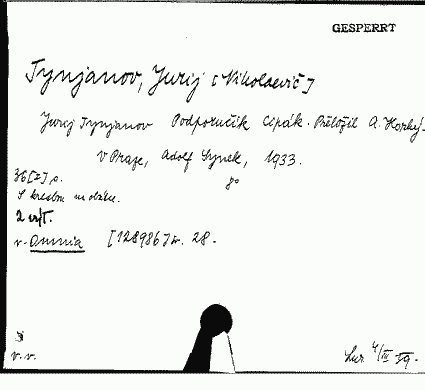 GESPERRT
Tynjanov, Jurij [Nikolaevič]
Jurij Tynjanov Podporučík Cipák. Přeložil A. Horkej.
v Praze, Adolf Synek, 1933.
8°
36 [I] s.
S kresbou na obálce.
v. Omnia [128986] sv. 28.
v. v.